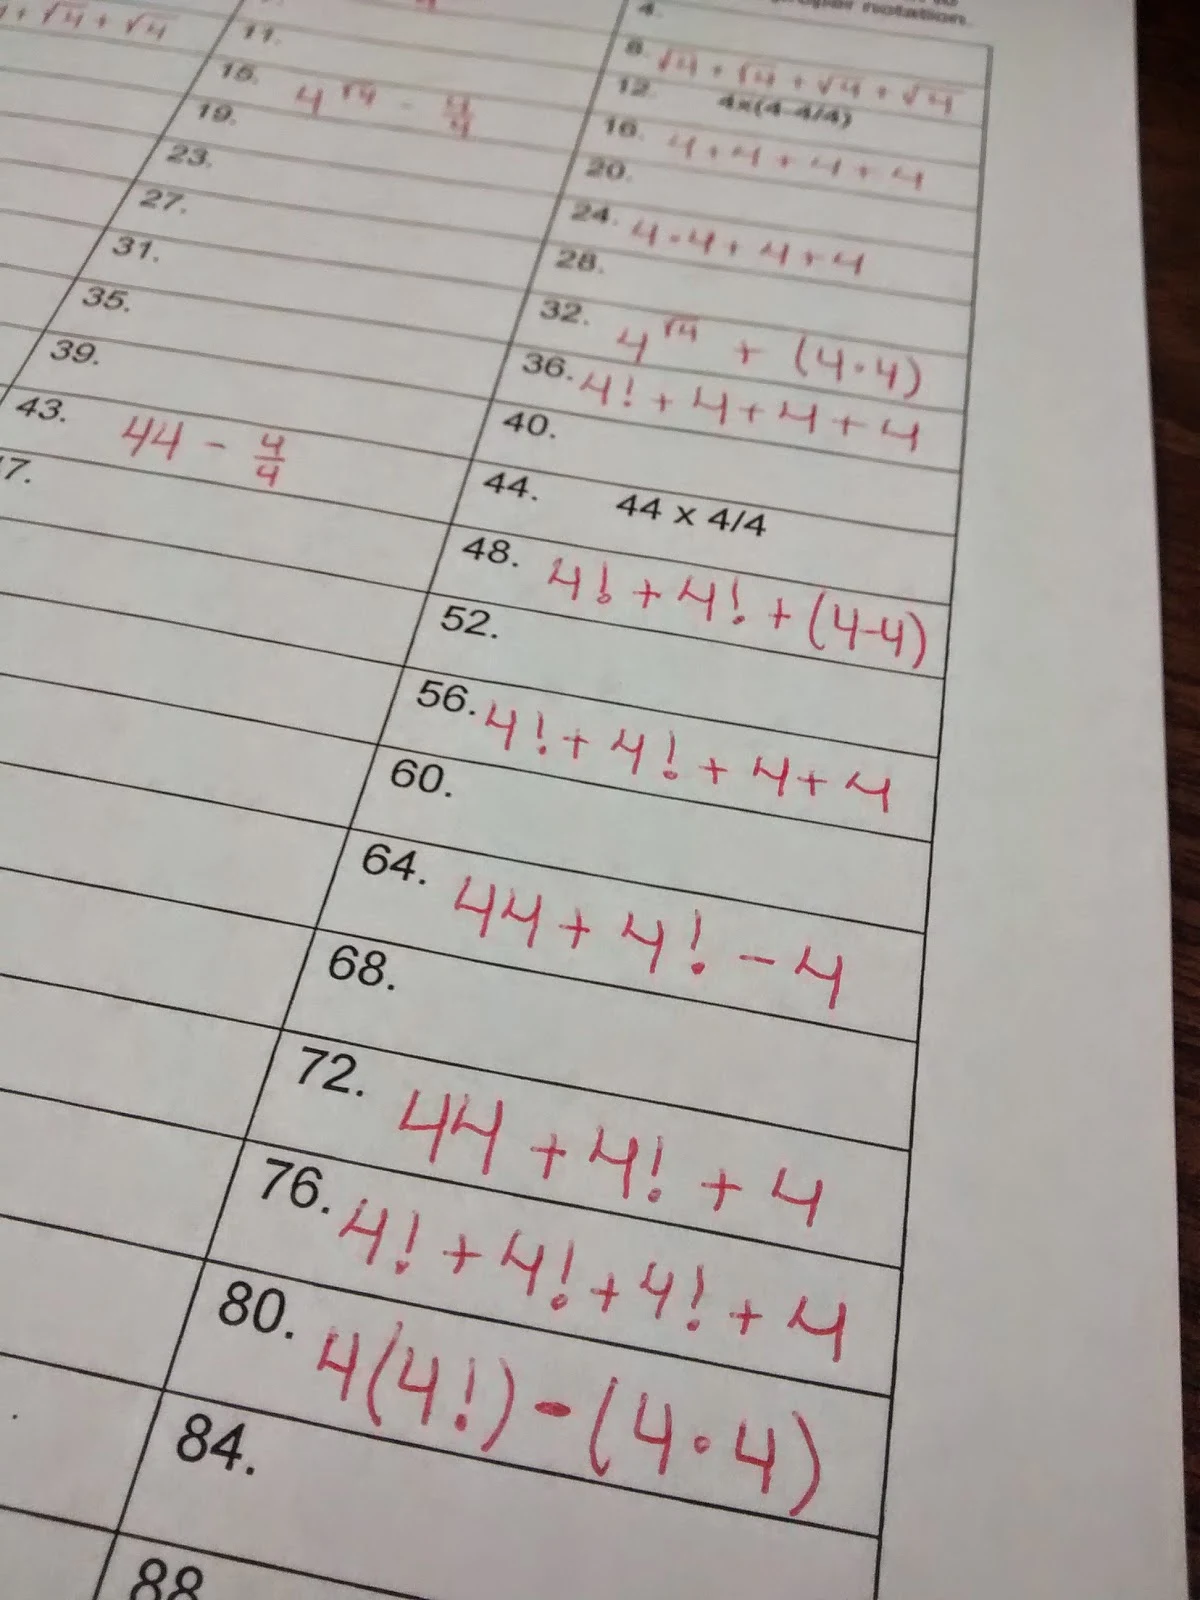 proper notation.
√4 + √4 + √4
11.
15. 4^√4 - 4/4
19.
23.
27.
31.
35.
39.
43. 44 - 4/4
4.
8. √4 + √4 + √4 + √4
12. 4x(4-4/4)
16. 4+4+4+4
20.
24. 4·4+4+4
28.
32. 4^√4 + (4·4)
36. 4!+4+4+4
40.
44. 44 x 4/4
48. 4!+4!+(4-4)
52.
56. 4!+4!+4+4
60.
64. 44+4!-4
68.
72. 44+4!+4
76. 4!+4!+4!+4
80. 4(4!)-(4·4)
84.
88